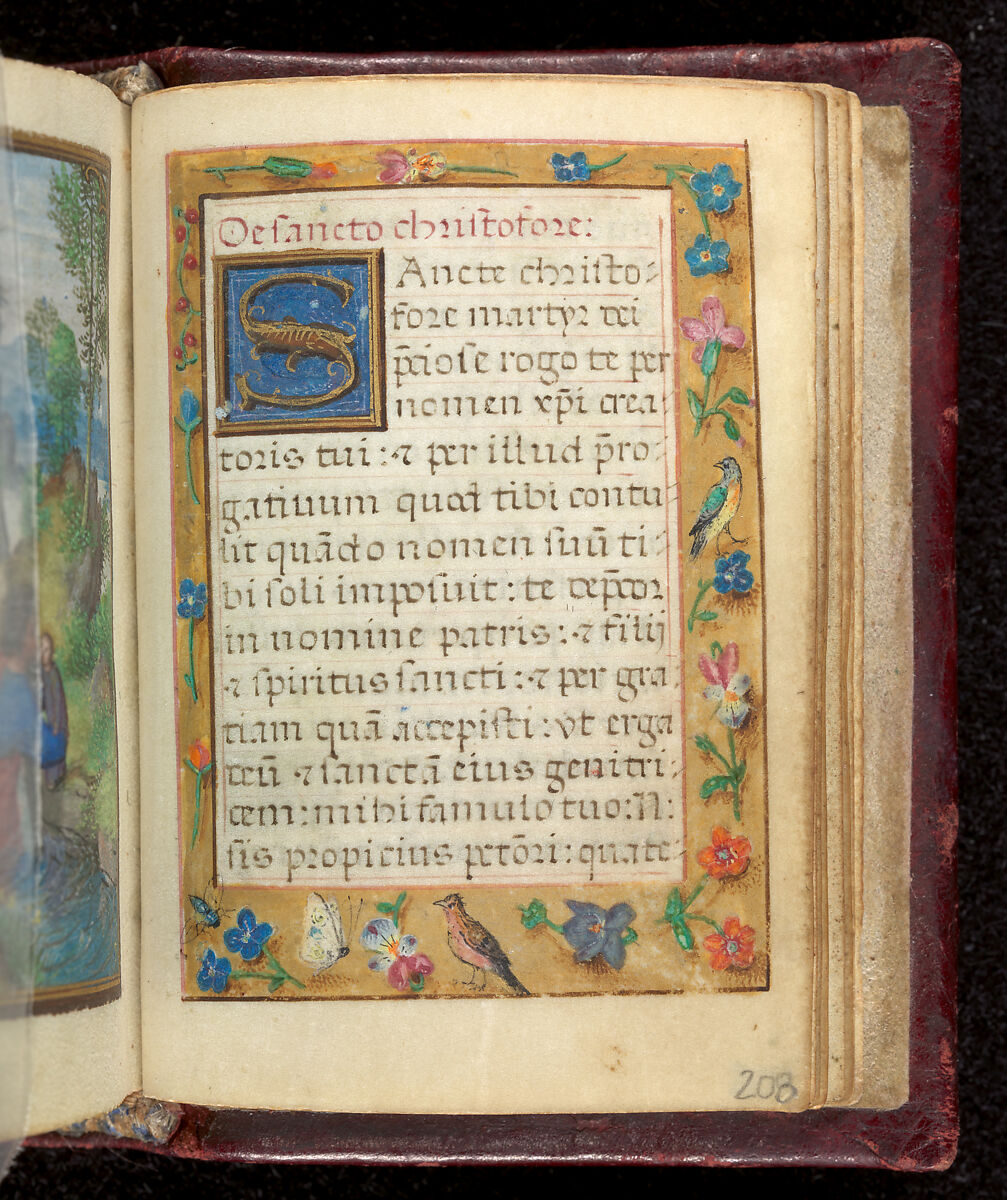 De sancto christofore:
SAncte christo-
fore martyr dei
p̄ciose rogo te per
nomen xp̄i crea-
toris tui: ⁊ per illud p̄ro-
gatiuum quod tibi contu-
lit quādo nomen suū ti-
bi soli imposuit: te dep̄cor
in nomine patris: ⁊ filij
⁊ spiritus sancti: ⁊ per gra-
tiam quā accepisti: vt erga
deū ⁊ sanctā eius genitri-
cem: mihi famulo tuo: N:
sis propicius petōri: quate-
208